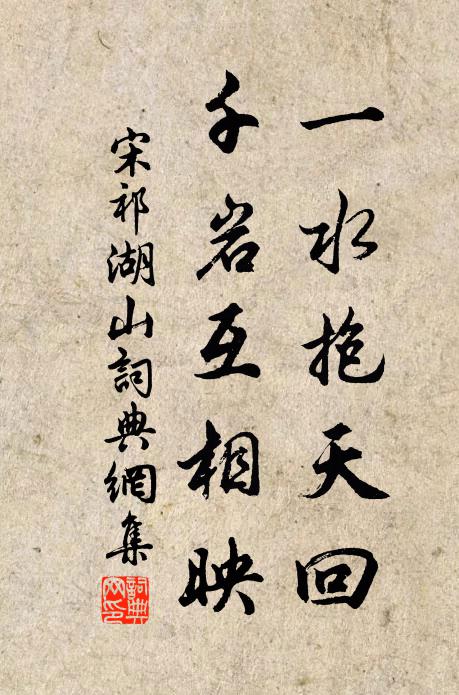 一水抱天回
千岩互相映
宋祁湖山詞典網集
詞典网印